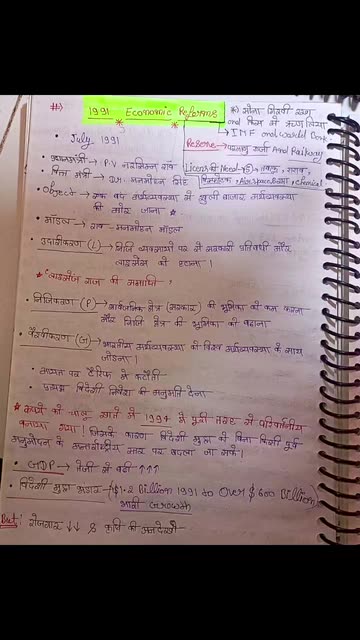 #)
1991 Economic Reforms
*) सोना गिरवी रखा
and फिर से ऋण लिया
→ IMF and World Bank
Resorve → परमाणु ऊर्जा And Railway
• July 1991
• प्रधानमंत्री → P.V नरसिम्हा राव
• वित्त मंत्री → Dr. मनमोहन सिंह
License की Need → 5 → तम्बाकू, शराब,
विस्फोटक, Airspace & रक्षा, Chemical
• Object → एक बंद अर्थव्यवस्था से खुली बाजार अर्थव्यवस्था
की ओर जाना
• मॉडल → राव - मनमोहन मॉडल
• उदारीकरण (L) → निजि व्यवसायों पर से सरकारी प्रतिबंधों और
लाइसेंस को हटाना।
* "लाइसेंस राज की समाप्ति"
• निजिकरण (P) → सार्वजनिक क्षेत्र (सरकार) की भूमिका को कम करना
और निजि क्षेत्र की भूमिका को बढ़ाना
• वैश्वीकरण (G) → भारतीय अर्थव्यवस्था को विश्व अर्थव्यवस्था के साथ
जोड़ना।
• आयात पर टैरिफ में कटौती
• प्रत्यक्ष विदेशी निवेश की अनुमति देना
* रुपये को चालू खाते में 1994 में पूरी तरह से परिवर्तनीय
बनाया गया। जिसके कारण विदेशी मुद्रा को बिना किसी पूर्व
अनुमोदन के अन्तराष्ट्रीय स्तर पर बदला जा सके।
• GDP → तेजी से बढ़ी ↑↑↑
• विदेशी मुद्रा भंडार → ($1.2 Billion 1991 to Over $600 Billion)
भारी Growth
But: रोजगार ↓↓ & कृषि की अनदेखी